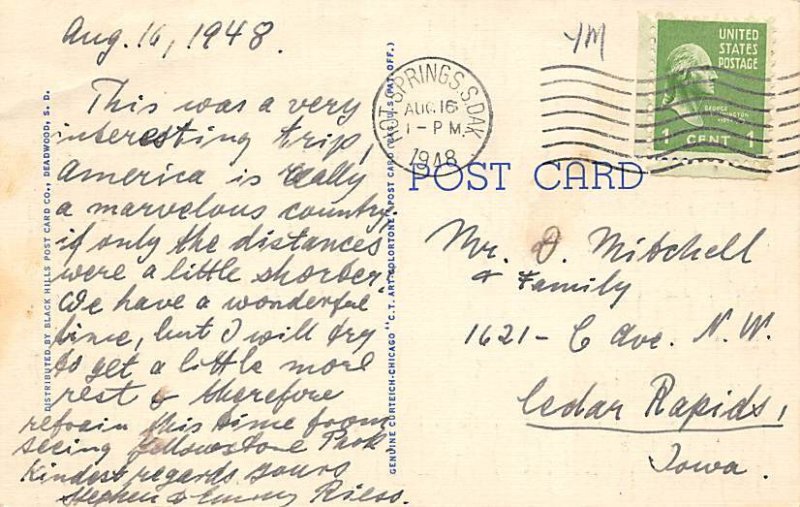 Aug. 16, 1948.
This was a very
interesting trip,
America is really
a marvelous country
if only the distances
were a little shorter.
We have a wonderful
time, but I will try
to get a little more
rest & therefore
refrain this time from
seeing Yellowstone Park
Kindest regards yours
Stephen & Emmy Riess.
DISTRIBUTED BY BLACK HILLS POST CARD CO., DEADWOOD, S. D.
GENUINE CURTEICH-CHICAGO "C. T. ART-COLORTONE" POST CARD (REG. U. S. PAT. OFF.)
HOT SPRINGS, S. DAK.
AUG 16
1 - P M.
1948
YM
UNITED
STATES
POSTAGE
GEORGE
WASHINGTON
1 CENT 1
POST CARD
Mr. D. Mitchell
& Family
1621 - C Ave. N. W.
Cedar Rapids,
Iowa.